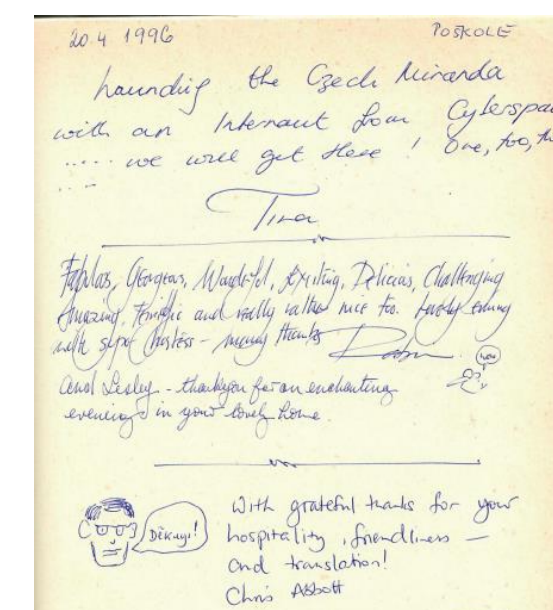 20.4 1996
POSKOLE
Launching the Czech Miranda
with an Internaut from Cyberspa
..... we will get there ! One, two, th
.....
Tina
Fabulous, Gorgeous, Wonderful, Exciting, Delicious, Challenging
Amazing, Terrific and really rather nice too. Lovely evening
with super hostess - many thanks
and Lesley - thankyou for an enchanting
evening in your lovely home
Děkuji!
With grateful thanks for your
hospitality, friendliness —
and translation!
Chris Abbott